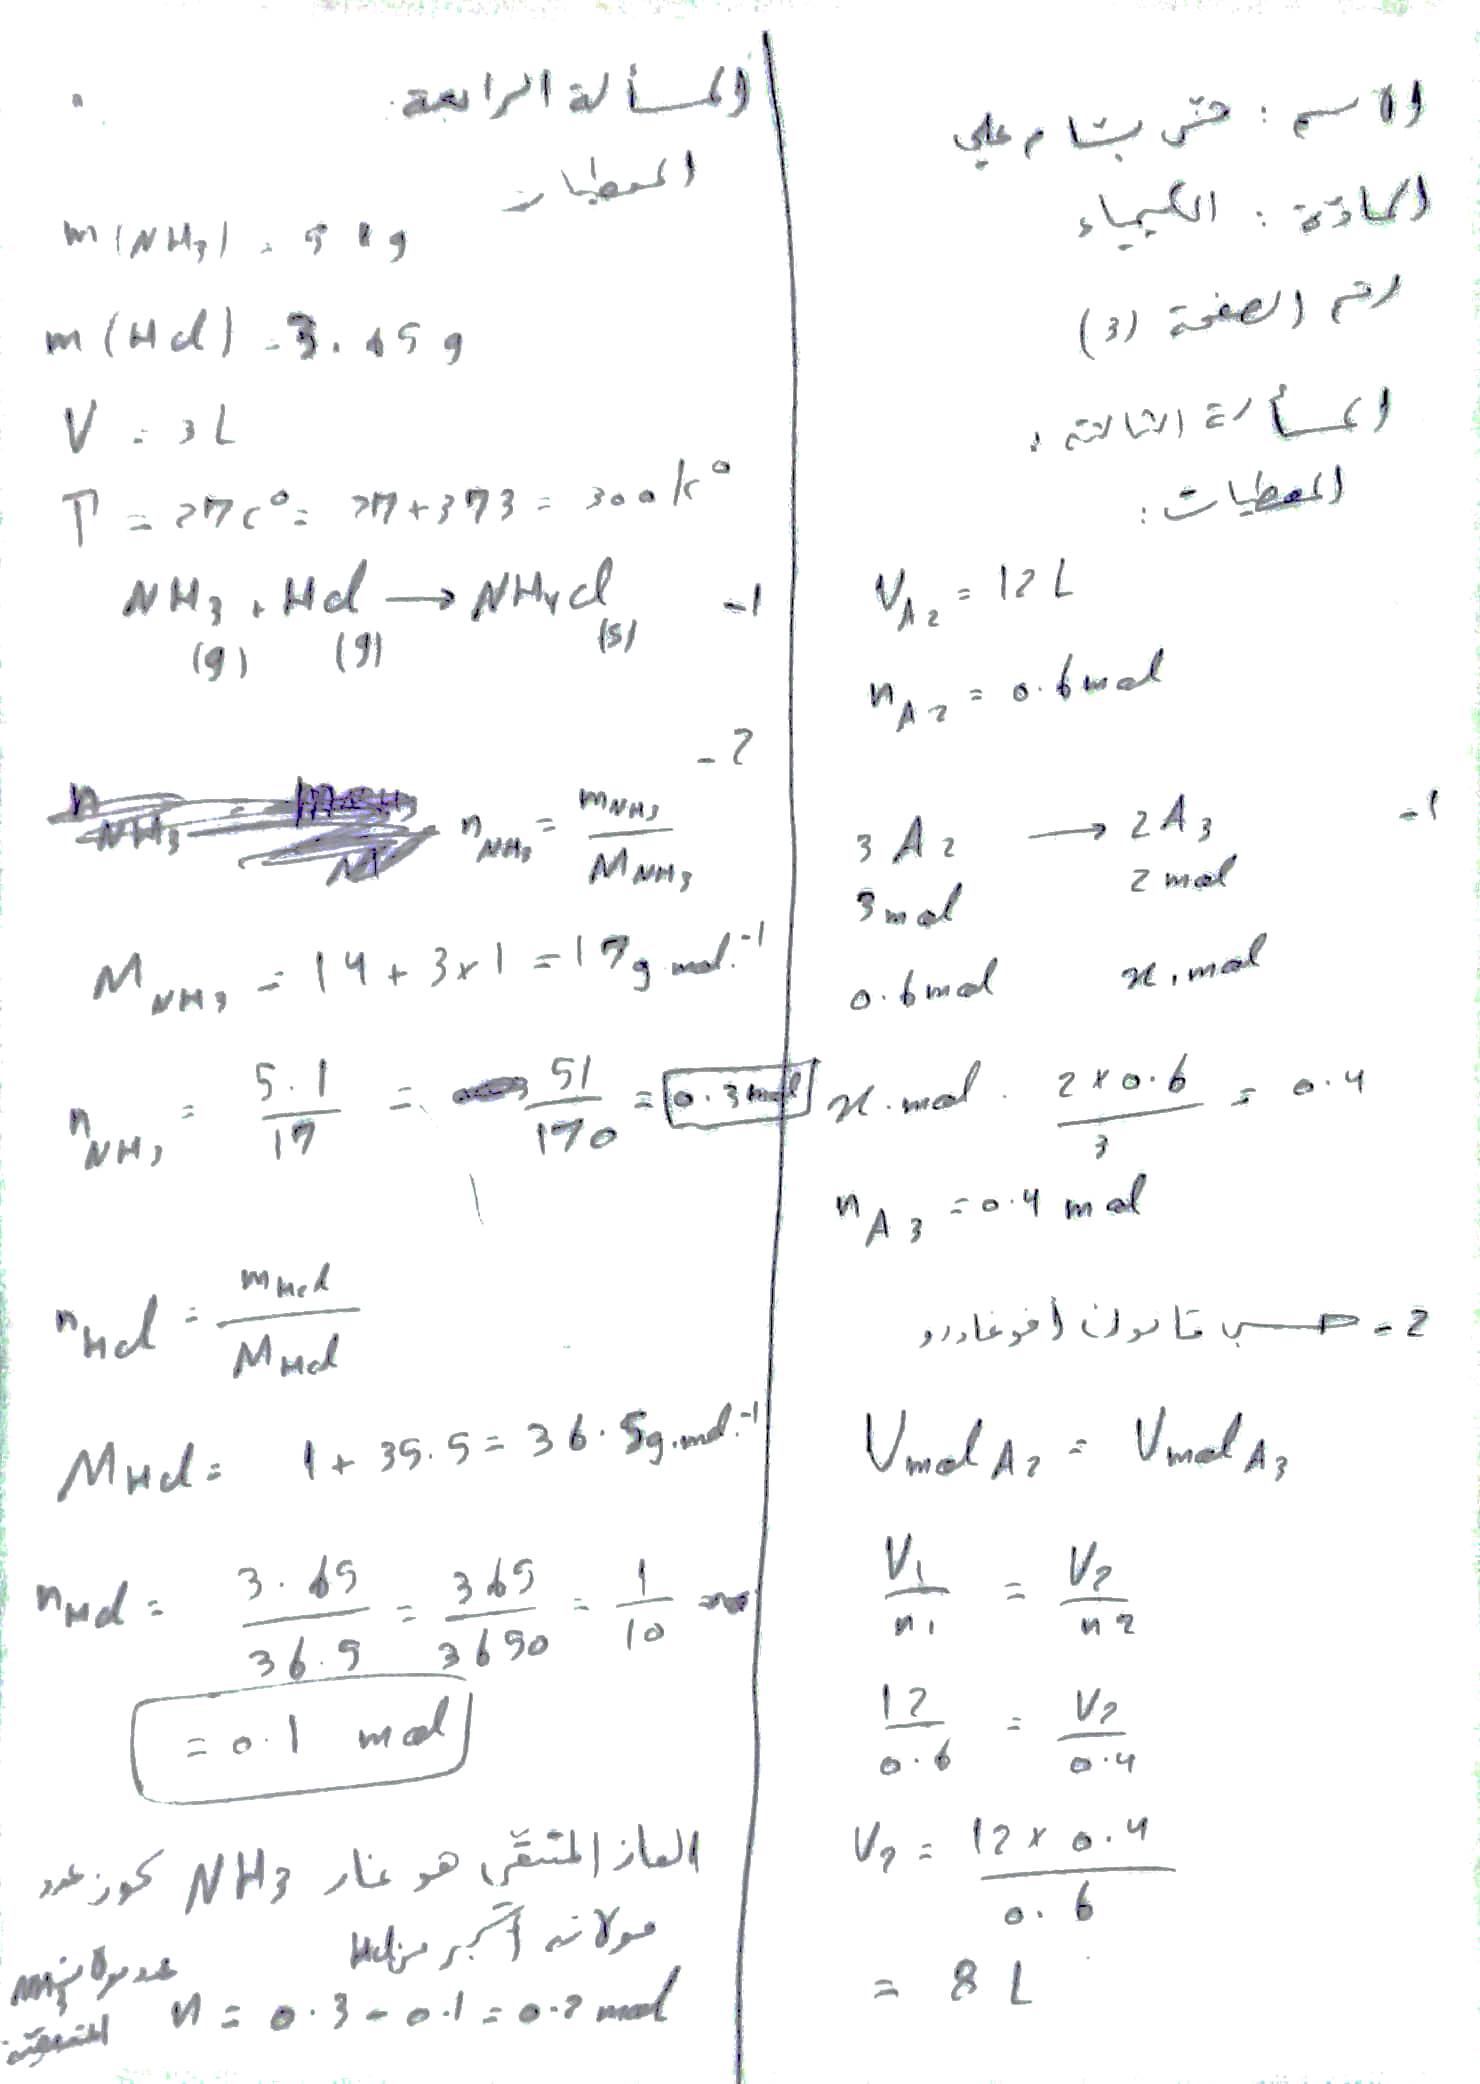 الاسم : بشام علي
المادّة : الكيمياء
رقم الصفحة (3)
المسألة الثالثة :
المعطيات :
V_A2 = 12 L
n_A2 = 0.6 mol
1- 3 A2 → 2 A3
3 mol 2 mol
0.6 mol x. mol
x. mol = 2 × 0.6 / 3 = 0.4
n_A3 = 0.4 mol
2- حسب قانون أفوغادرو
Vmol A2 = Vmol A3
V1 / n1 = V2 / n2
12 / 0.6 = V2 / 0.4
V2 = 12 × 0.4 / 0.6
= 8 L
المسألة الرابعة :
المعطيات
m (NH3) = g
m (HCl) = 3.65 g
V = 3 L
T = 27 C° = 27 + 373 = 300 K°
1- NH3 (g) + HCl (g) → NH4Cl (s)
2-
n_NH3 = m_NH3 / M_NH3
M_NH3 = 14 + 3 × 1 = 17 g.mol.-1
n_NH3 = 5.1 / 17 = 51 / 170 = 0.3 mol
n_HCl = m_HCl / M_HCl
M_HCl = 1 + 35.5 = 36.5 g.mol.-1
n_HCl = 3.65 / 36.5 = 365 / 3650 = 1 / 10
= 0.1 mol
الغاز المتبقّي هو غاز NH3 كون عدد
مولاته أكبر من HCl
عدد مولات NH3 المتبقية n = 0.3 - 0.1 = 0.2 mol